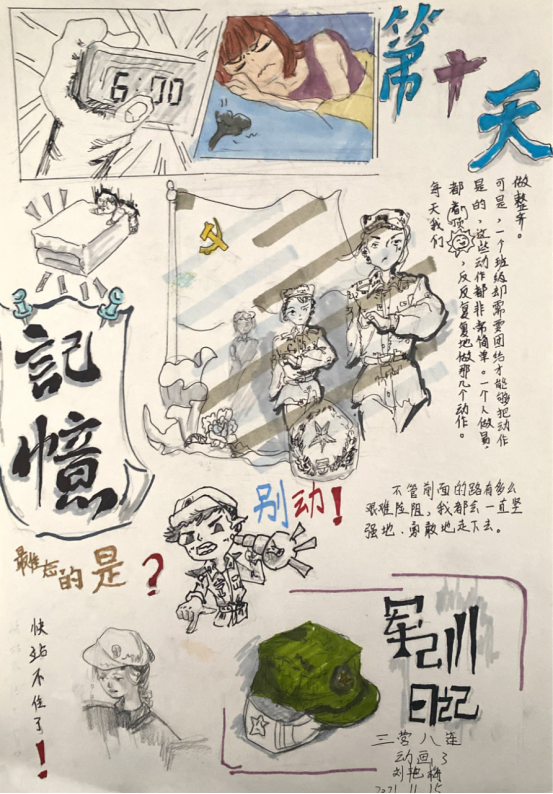 6:00
第十天
每天我们
都都顶，反反复复地做那几个动作。
是的，这些动作都非常简单。一个人做易，
可是，一个班级却需要团结才能够把动作
做整齐。
記憶
别动！
不管前面的路有多么
艰难险阻，我都会一直坚
强地、勇敢地走下去。
最难忘的是？
快站不住了！
军训
日记
三营八连
动画3
刘艳梅
2021.11.15